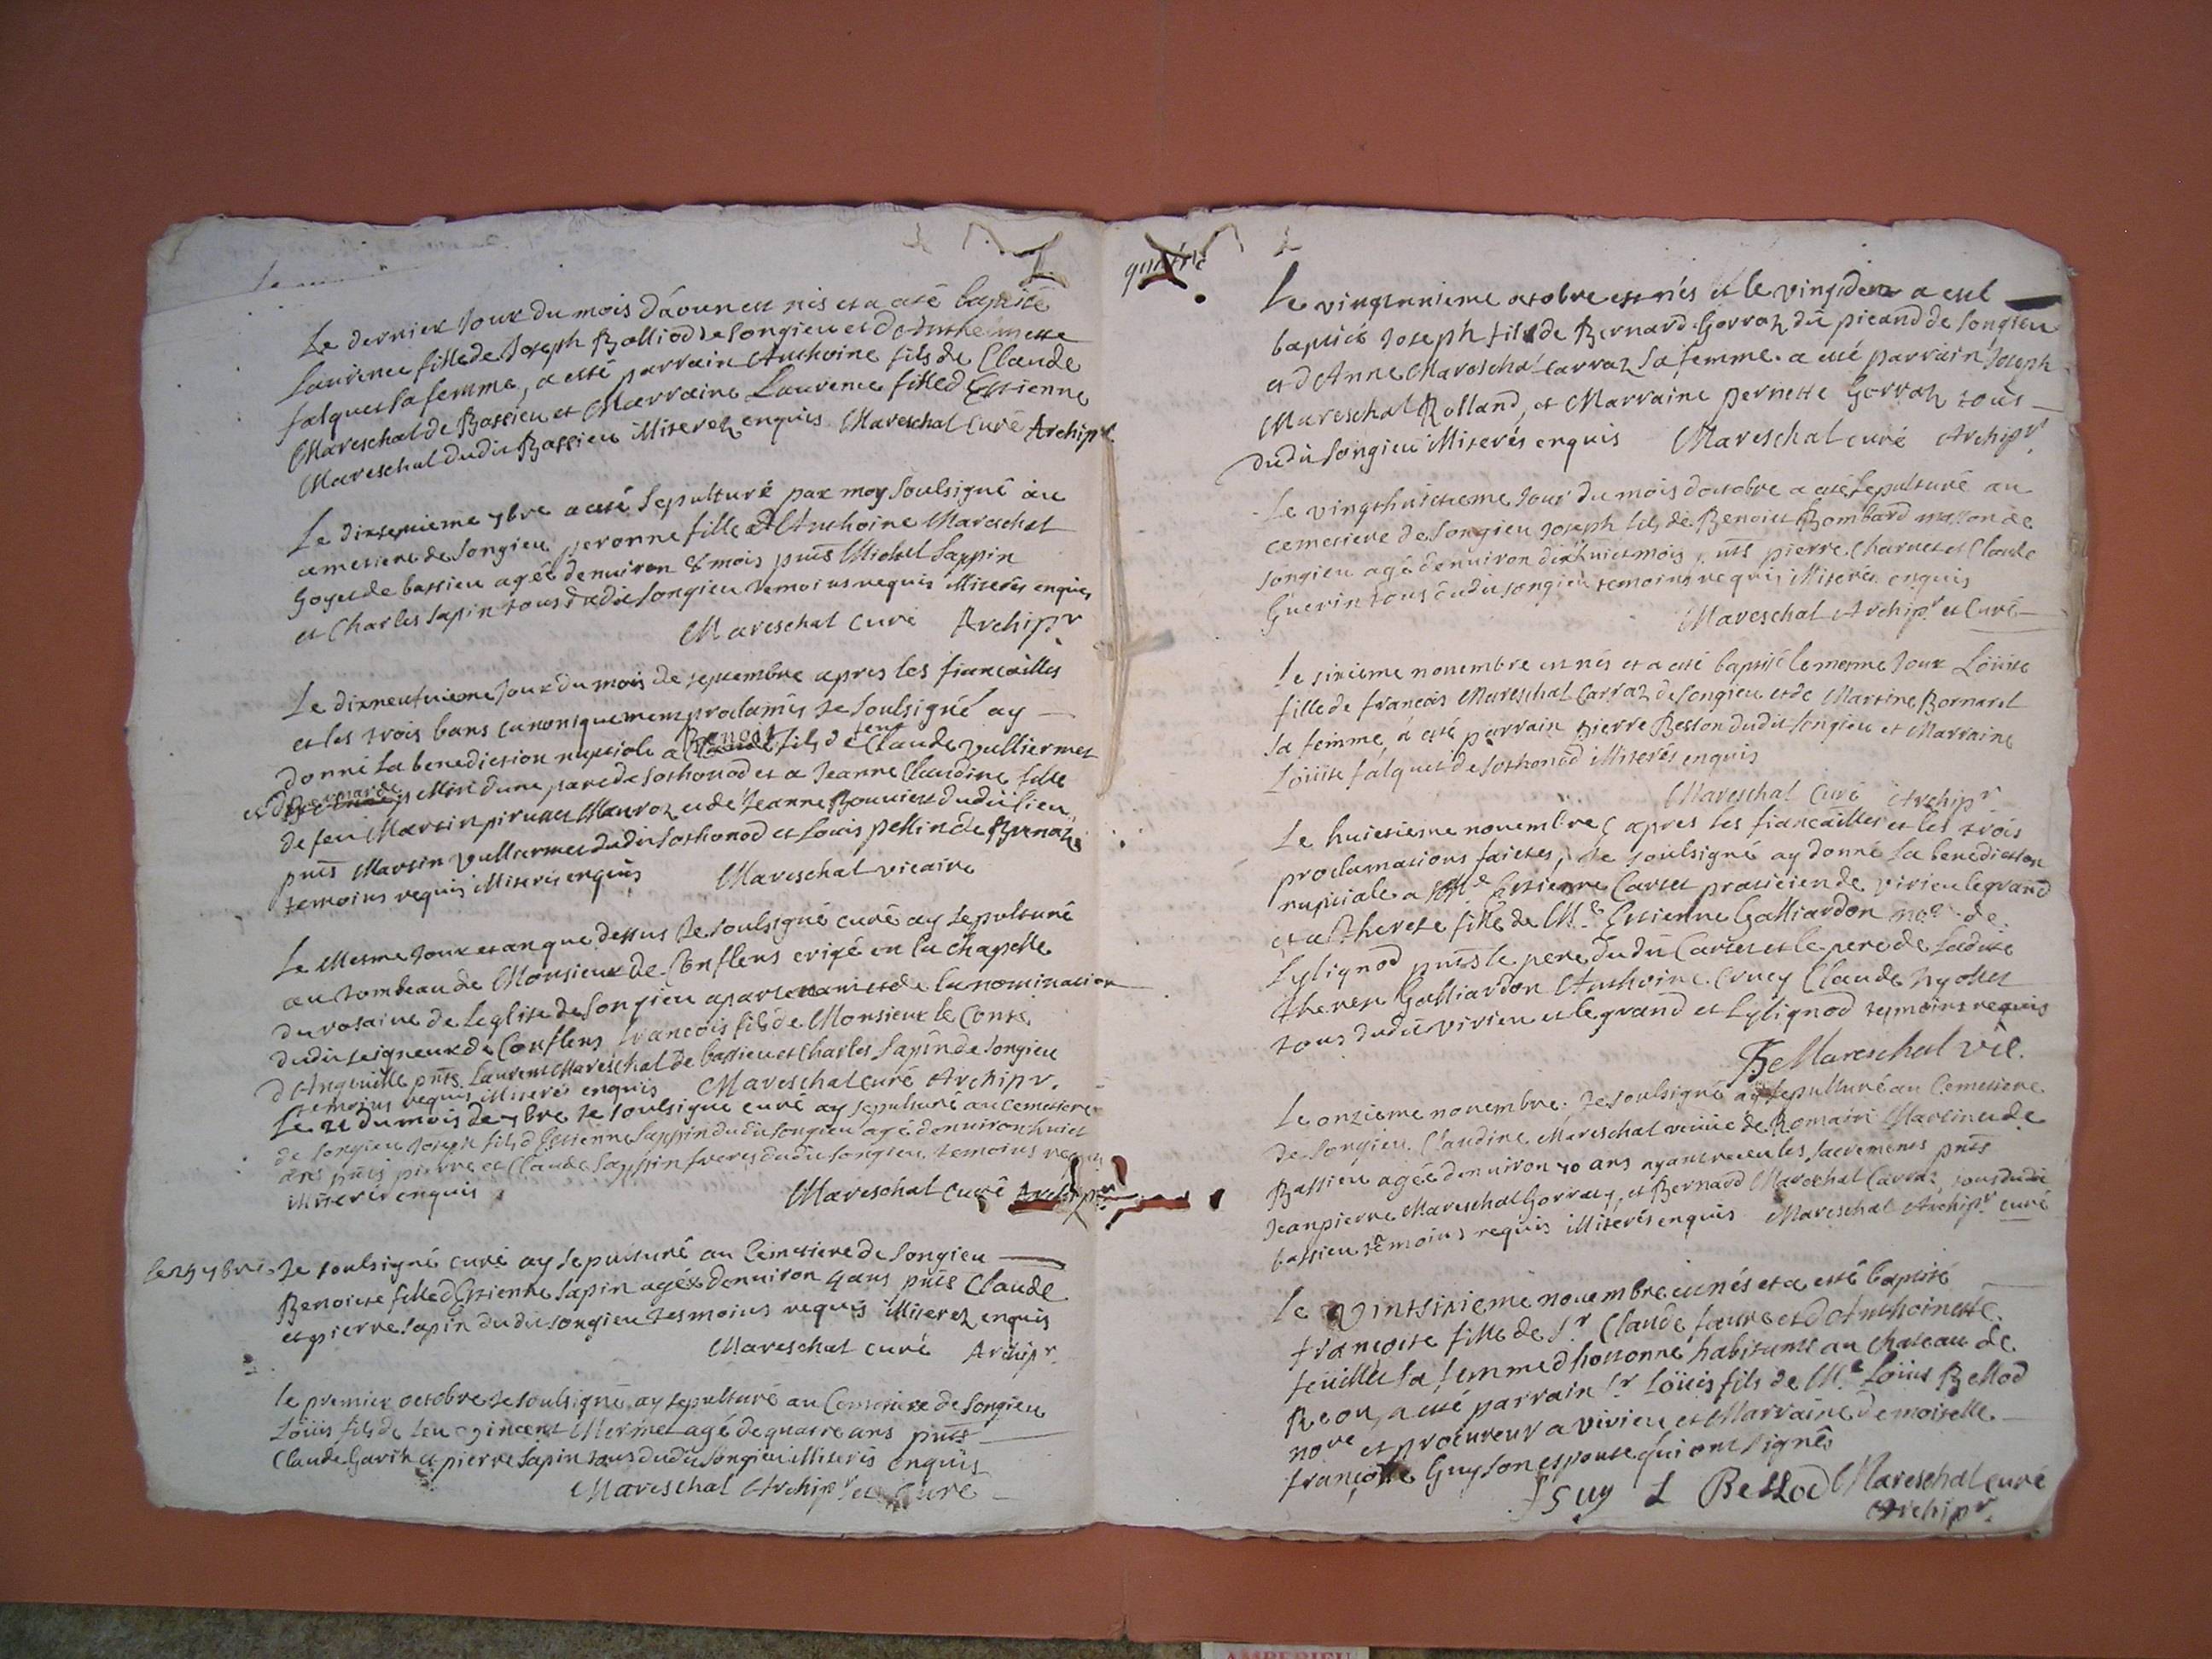 Le dernier Jour du mois d'aoun est nés et a esté baptisé
Laurence fille de Joseph Balliod de Songieu et d'Anthelmette
falquet sa femme, a esté parrain Anthoine fils de Claude
Mareschal de Bassieu et Marraine Laurence fille d'Estienne
Mareschal dudit Bassieu illiterez enquis Mareschal Curé Archipr
Le dixseptieme 7bre a esté Sepulturé par moy Soulsigné au
cemetiere de Songieu peronne fille d'Anthoine Mareschal
Goyet de bassieu agée denuiron 8 mois pnts Michel Sappin
et Charles Sapin tous dudit Songieu temoins requis illiterés enquis
Mareschal Curé Archipr
Le dixneufuieme Jour du mois de septembre apres les fiancailles
et les trois bans canoniquement proclamés Je Soulsigné ay
donné la benediction nuptiale a Benoit fils de feu Claude Vulliermet
et de Bernarde Miri d'une part de Sothonod et a Jeanne Claudine fille
de feu Martin piruaet Mauroz et de Jeanne Bouvier dudit lieu
pnts Martin Vulliermet dudit Sothonod et Louis pellin de Brenaz
temoins requis illiterés enquis Mareschal vicaire
Le Mesme Jour et an que dessus Je soulsigné curé ay sepulturé
au tombeau de Monsieur de Conflens erigé en la chapelle
du rosaire de Leglise de Songieu apartenant et de la nomination
dudit seigneur de Conflens francois fils de Monsieur le Conte
d'Angeuille pnts Laurent Mareschal de bassieu et Charles Sapin de Songieu
temoins requis illiterés enquis Mareschal curé Archipr.
Le 21 du mois de 7bre Je soulsigné curé ay sepulturé au cemetiere
de Songieu Joseph fils d'Estienne Sappin dudit Songieu agé denuiron huict
ans pnts pierre et Claude Sappin freres dudit Songieu temoins requis
illiterés enquis Mareschal Curé Archipr
le 25 7bre Je soulsigné curé ay sepulturé au Cemetiere de Songieu
Benoicte fille d'Estienne Sapin agée denuiron 4 ans pnts Claude
et pierre Sapin dudit songieu tesmoins requis illiterez enquis
Mareschal curé Archipr
le premier octobre Je soulsigné ay sepulturé au Cemetiere de Songieu
Louis fils de feu vincent Mermet agé de quatre ans pnts
Claude Garin et pierre Sapin tous dudit Songieu illiterés enquis
Mareschal Archipr et Curé
Le vingtunieme octobre est nés et le vingtdeux a esté
baptisé Joseph fils de Bernard Gorraz dit picand de Songieu
et d'Anne Mareschal Carraz sa femme. a esté parrain Joseph
Mareschal Rolland, et Marraine pernette Gorraz tous
dudit Songieu illiterés enquis Mareschal curé Archipr
Le vingthuictieme Jour du mois doctobre a esté sepulturé au
cemetiere de Songieu Joseph fils de Benoict Bombard masson de
Songieu agé denuiron dixhuict mois, pnts pierre Charuet et Claude
Guerin tous dudit songieu temoins requis illiterés enquis
Mareschal Archipr et Curé
Le sixieme nouembre est nés et a esté baptisé le mesme Jour Loüise
fille de francois Mareschal Carraz de Songieu et de Martine Bornarel
sa femme, a esté parrain pierre Besson dudit Songieu et Marraine
Loüise falquet de Sothonod illiterés enquis
Mareschal Curé Archipr
Le huictieme nouembre apres les fiancailles et les trois
proclamations faictes, Je soulsigné ay donné la benediction
nuptiale a Me Estienne Cartet praticien de virieu le grand
et a Therese fille de Me Estienne Galliardon nore de
Lylignod pnts le pere dudit Cartet et le pere de ladite
therese Galliardon Anthoine Cruey Claude Nyollet
tous dudit virieu le grand et Lylignod temoins requis
Mareschal vic.
Le onzieme nouembre. Je soulsigné ay sepulturé au Cemetiere
de Songieu Claudine Mareschal veuue de Romain Martinet de
Bassieu agée denuiron 70 ans ayant receu les sacrements pnts
Jeanpierre Mareschal Gorraz, et Bernard Mareschal Carraz, tous dudit
bassieu temoins requis illiterés enquis Mareschal Archipr curé
Le vintsixieme nouembre est nés et a esté baptisé
francoise fille de Sr Claude faure et d'Anthoinette
feuillet sa femme d'hostonne habitants au chateau de
Reou, a esté parrain Sr Loüis fils de Me Loüis Bellod
nore et procureur a virieu et Marraine demoiselle
francoise Guy son espouse qui ont signés
f Guy L Bellod Mareschal curé
Archipr.